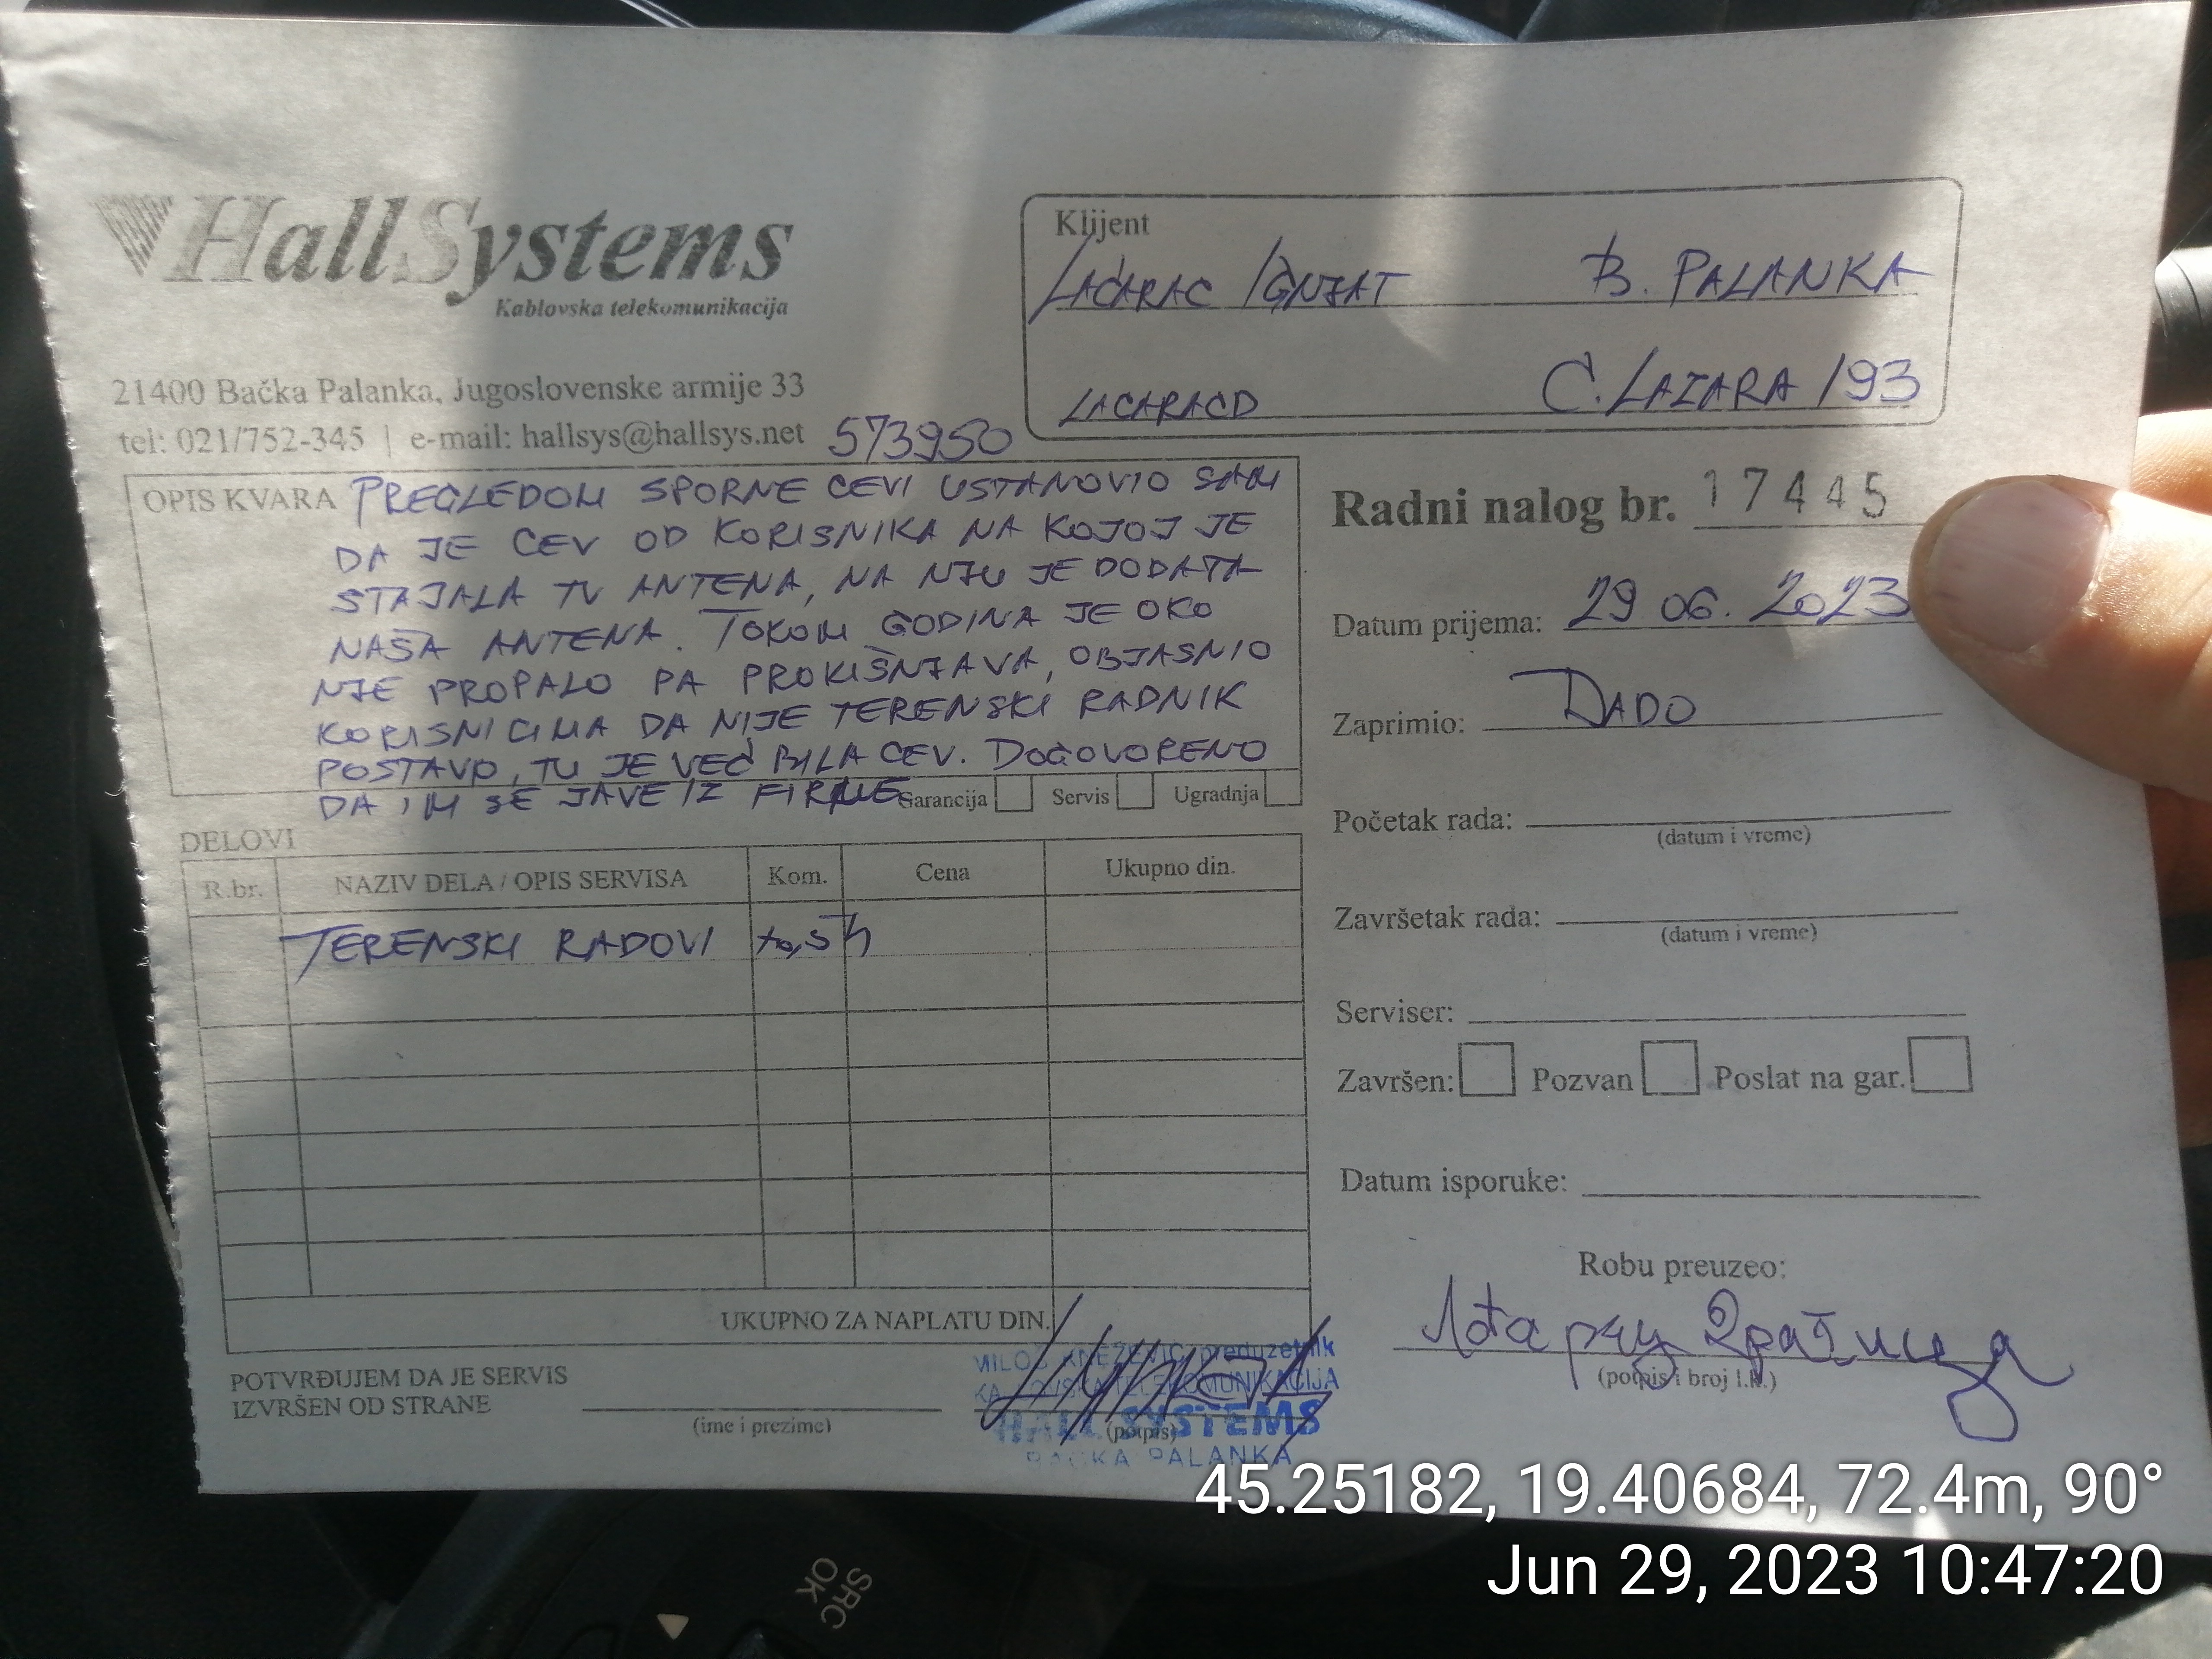 HallSystems
Kablovska telekomunikacija
21400 Bačka Palanka, Jugoslovenske armije 33
tel: 021/752-345 | e-mail: hallsys@hallsys.net 573950
Klijent
LAĆARAC IGNJAT B. PALANKA
LACARACD C. LAZARA 193
OPIS KVARA PREGLEDOM SPORNE CEVI USTANOVIO SAM
DA JE CEV OD KORISNIKA NA KOJOJ JE
STAJALA TV ANTENA, NA NJU JE DODATA
NAŠA ANTENA. TOKOM GODINA JE OKO
NJE PROPALO PA PROKIŠNJAVA, OBJASNIO
KORISNICIMA DA NIJE TERENSKI RADNIK
POSTAVIO, TU JE VEĆ BILA CEV. DOGOVORENO
DA IM SE JAVE IZ FIRME
Garancija Servis Ugradnja
Radni nalog br. 17445
Datum prijema: 29 06. 2023
Zaprimio: DADO
Početak rada:
(datum i vreme)
Završetak rada:
(datum i vreme)
Serviser:
Završen: Pozvan Poslat na gar.
Datum isporuke:
Robu preuzeo:
(potpis i broj l.k.)
DELOVI
R.br. NAZIV DELA / OPIS SERVISA Kom. Cena Ukupno din.
TERENSKI RADOVI
UKUPNO ZA NAPLATU DIN.
POTVRĐUJEM DA JE SERVIS
IZVRŠEN OD STRANE
(ime i prezime)
(potpis)
MILOŠ KNEŽEVIĆ preduzetnik
KABLOVSKA TELEKOMUNIKACIJA
HALL SYSTEMS
BAČKA PALANKA
45.25182, 19.40684, 72.4m, 90°
Jun 29, 2023 10:47:20
SRC
OK